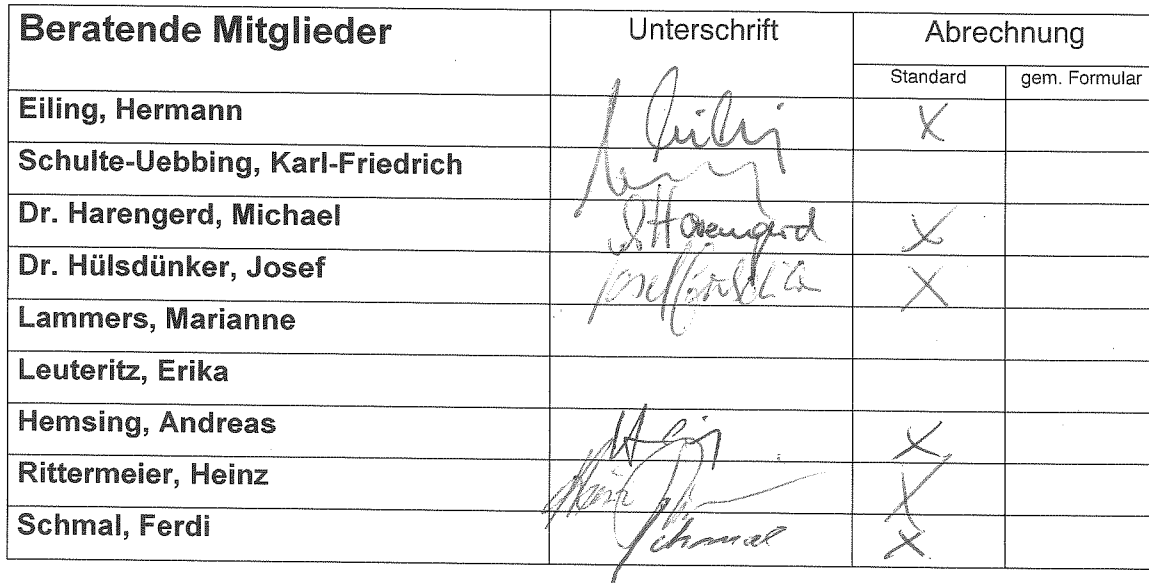 Beratende Mitglieder Unterschrift Abrechnung
Standard gem. Formular
Eiling, Hermann X
Schulte-Uebbing, Karl-Friedrich
Dr. Harengerd, Michael Harengerd X
Dr. Hülsdünker, Josef Josef X
Lammers, Marianne
Leuteritz, Erika
Hemsing, Andreas X
Rittermeier, Heinz X
Schmal, Ferdi Schmal X